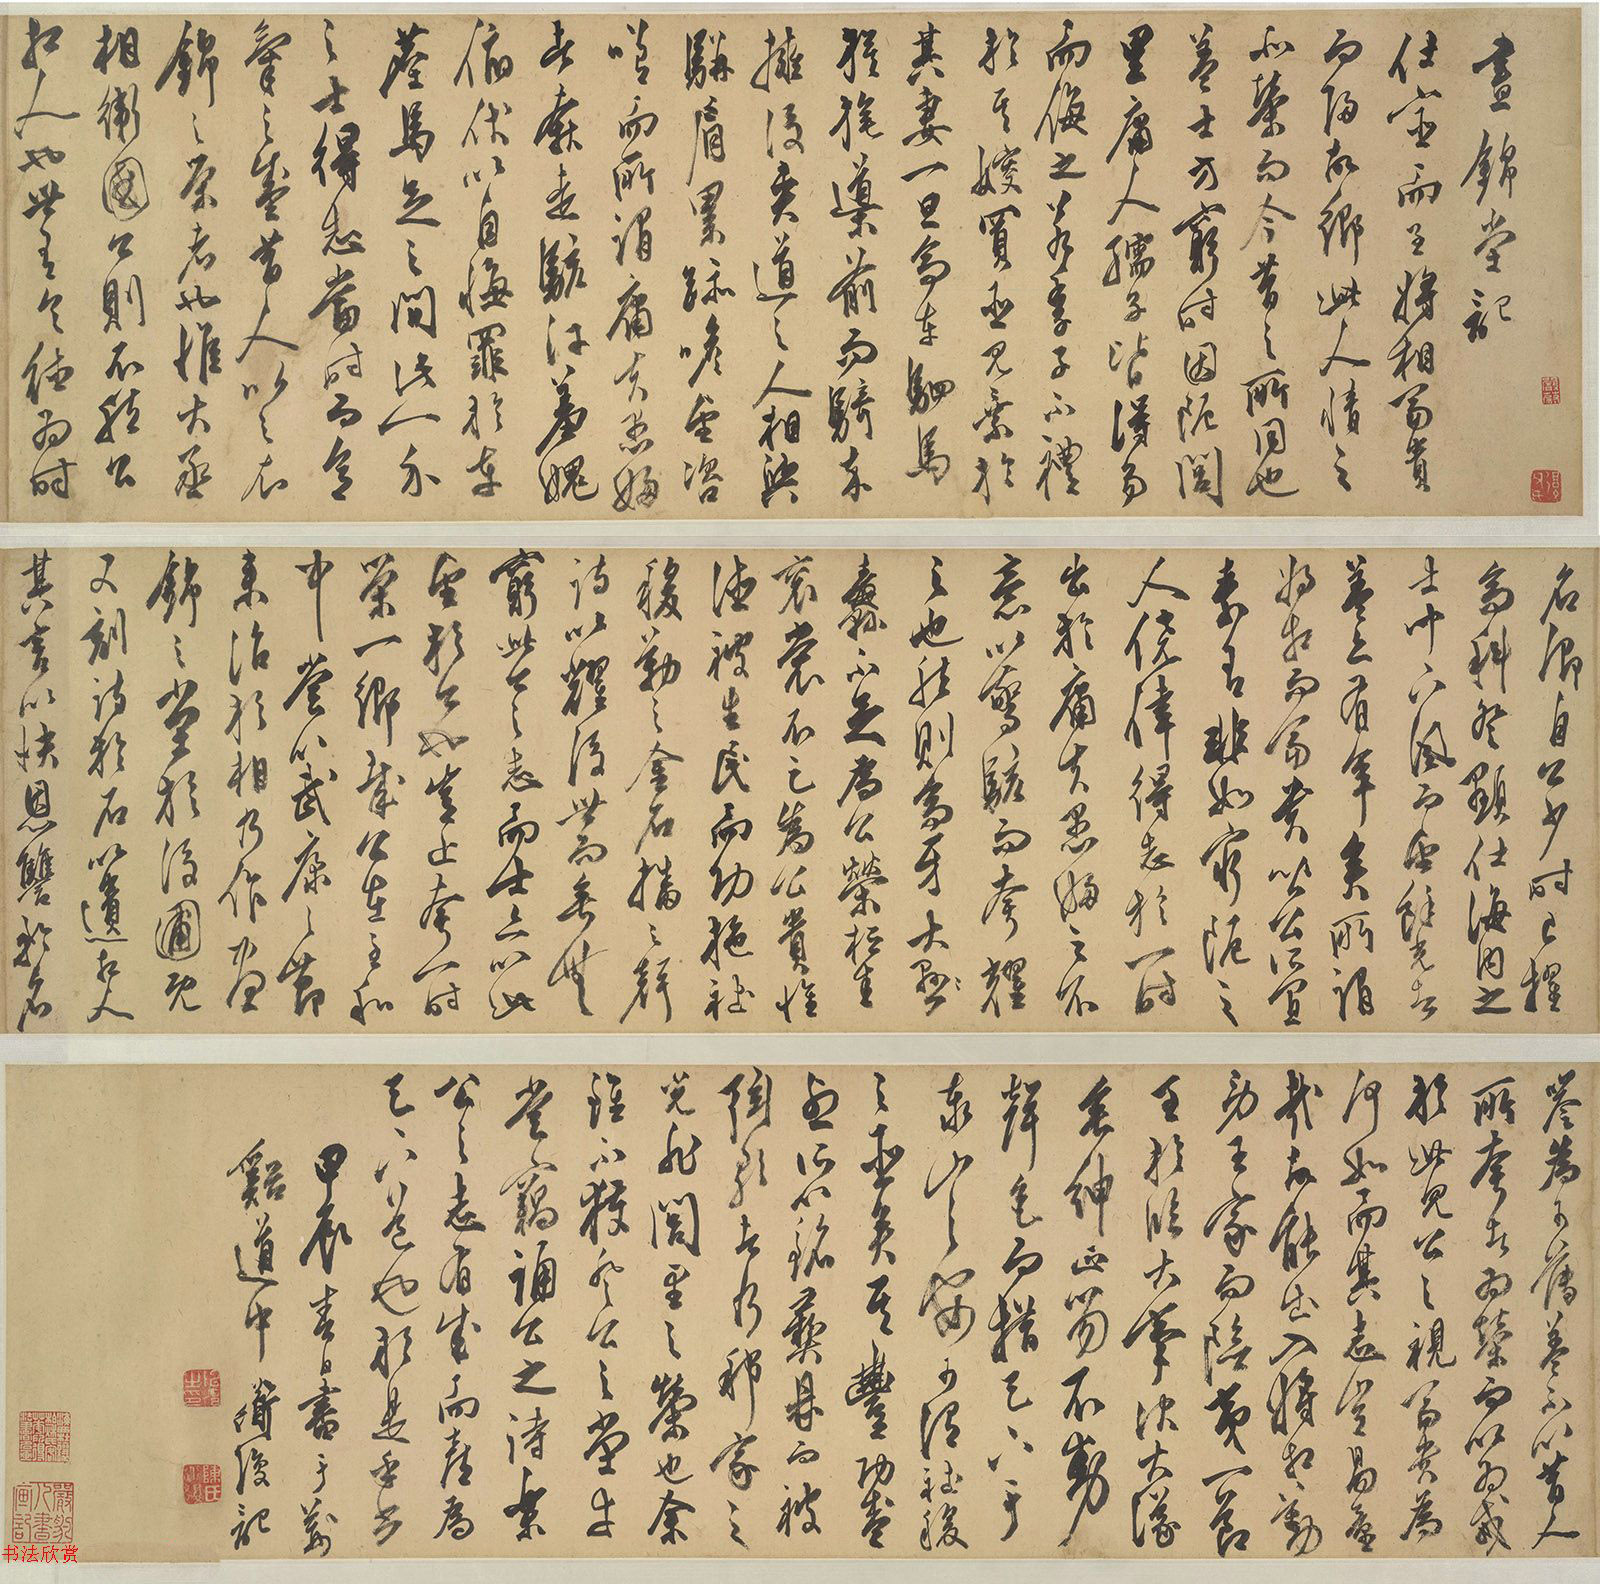 晝錦堂記
仕宦而至將相富貴
而歸故鄉此人情之
所榮而今昔之所同也
蓋士方窮時困阨閭
里庸人孺子皆得易
而侮之若季子不禮
於其嫂買臣見棄於
其妻一旦高車駟馬
旗旄導前而騎卒
擁後夾道之人相與
駢肩累跡瞻望咨
嗟而所謂庸夫愚婦
者奔走駭汗羞愧
俯伏以自悔罪於車
塵馬足之間此一介
之士得志當時而意
氣之盛昔人以之衣
錦之榮者也惟大丞
相衛國公則不然公
相人也世有令德為時
名卿自公少時已擢
高科登顯仕海內之
士聞下風而望餘光者
蓋亦有年矣所謂
將相而富貴皆公所宜
素有非如窮阨之
人僥倖得志於一時
出於庸夫愚婦之不
意以驚駭而夸耀
之也然則高牙大纛
不足為公榮桓圭
袞裳不足為公貴惟
德被生民而功施社
稷勒之金石播之聲
詩以耀後世而垂無
窮此公之志而士亦以此
望於公也豈止夸一時
榮一鄉哉公在至和
中嘗以武康之節
來治於相乃作晝
錦之堂於後圃既
又刻詩於石以遺相人
其言以快恩讎矜名
譽為可薄蓋不以昔人
所夸者為榮而以為戒
於此見公之視富貴為
何如而其志豈易量
哉故能出入將相勤
勞王家而夷險一節
至於臨大事決大議
垂紳正笏不動
聲色而措天下于
泰山之安可謂社稷
之臣矣其豐功盛
烈所以銘彝鼎而被
絃歌者乃邦家之
光非閭里之榮也余
雖不獲登公之堂幸
嘗竊誦公之詩樂
公之志有成而喜為
天下道也於是乎書
甲辰春日書于
谿道中
书法欣赏